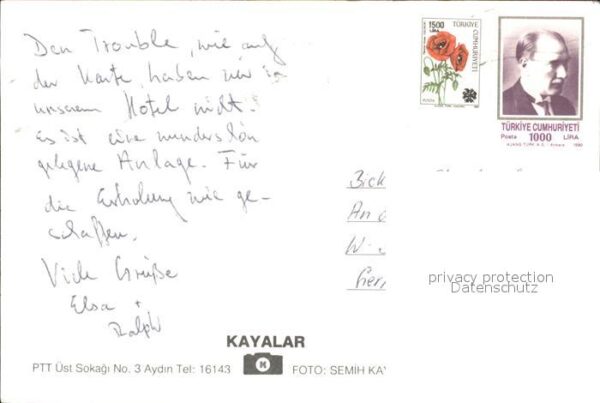 Den Trouble, wie auf
der Karte, haben wir in
unserem Hotel nicht.
Es ist eine wunderschön
gelegene Anlage. Für
die Erholung wie ge-
schaffen.
Viele Grüße
Elsa +
Ralph
1500
LİRA
TÜRKİYE
CUMHURİYETİ
TÜRKİYE CUMHURİYETİ
Posta 1000 LİRA
AJANS-TÜRK A.Ş. - Ankara 1990
Bick
An d
W
Ger
privacy protection
Datenschutz
KAYALAR
PTT Üst Sokağı No. 3 Aydın Tel: 16143
FOTO: SEMİH KAY